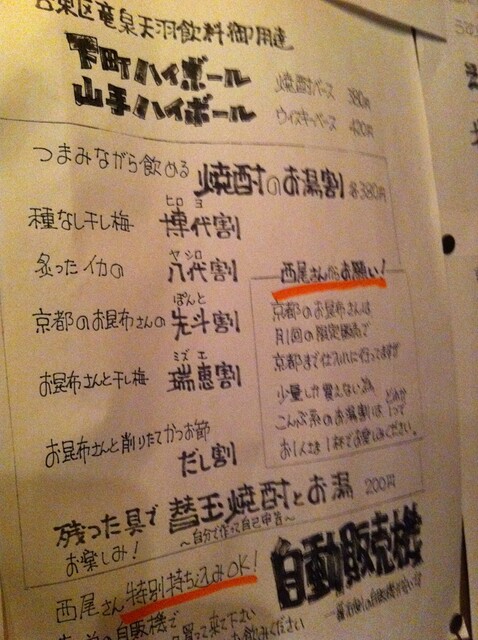 台東区竜泉天羽飲料御用達
下町ハイボール 焼酎ベース 380円
山手ハイボール ウィスキーベース 420円
つまみながら飲める 焼酎のお湯割 各380円
種なし干し梅 博代割 ヒロヨ
炙ったイカの 八代割 ヤシロ
京都のお昆布さんの 先斗割 ぽんと
お昆布さんと干し梅 瑞恵割 ミズエ
お昆布さんと削りたてかつお節
だし割
西尾さんからお願い!
京都のお昆布さんは
月1回の限定販売で
京都まで仕入れに行ってますが
少量しか買えない為
こんぶ系のお湯割は どれか1つで
お1人さま1杯でお楽しみください。
残った具で 替玉焼酎とお湯 200円
お楽しみ! 〜自分で作って自己申告〜
西尾さん特別持ち込みOK!
自動販売機
の自販機で
買って来て下さい